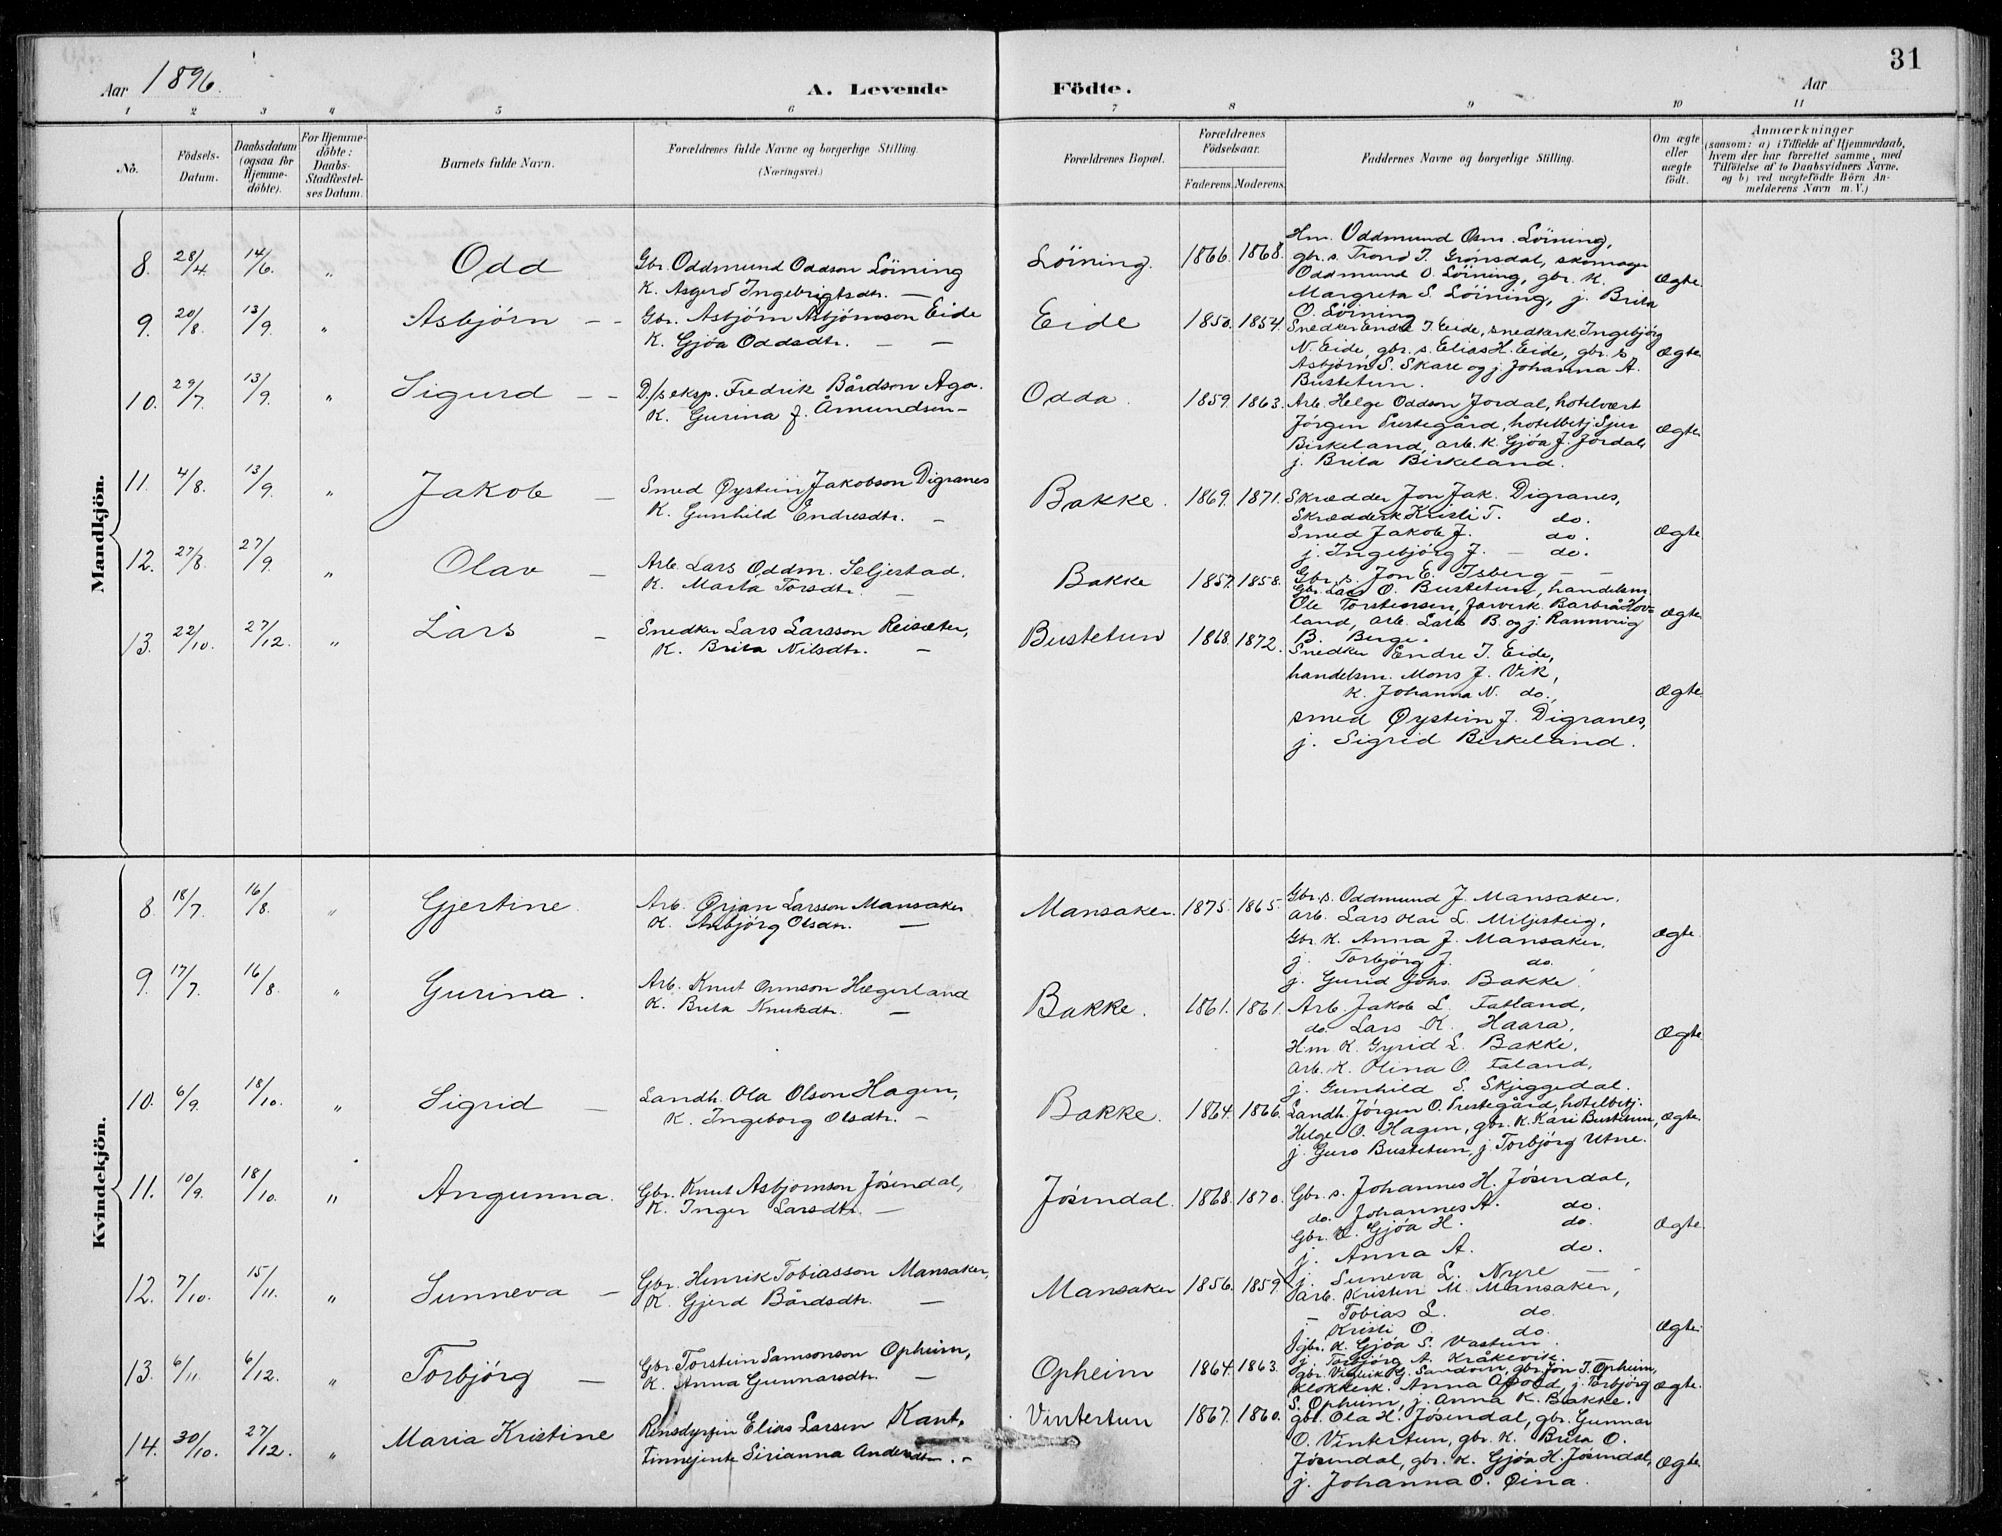 31
Aar 1896.
A. Levende Födte.
Aar
1 2 3 4 5 6 7 8 9 10 11
No.
Födsels-Datum.
Daabsdatum (ogsaa for Hjemme-döbte).
For Hjemme-döbte: Daabs-Stadfæstel-ses Datum.
Barnets fulde Navn.
Forældrenes fulde Navne og borgerlige Stilling. (Næringsvei.)
Forældrenes Bopæl.
Forældrenes Födselsaar.
Faderens. Moderens.
Faddernes Navne og borgerlige Stilling.
Om ægte eller uægte födt.
Anmærkninger
(saasom: a) i Tilfælde af Hjemmedaab,
hvem der har forrettet samme, med
Tilföielse af to Daabsvidners Navne,
og b) ved uægtefödte Börn An-
melderens Navn m. V.)
Mandkjön.
8. 28/4 14/6. " Odd
Gbr. Oddmund Oddson Löining
K. Asgerd Ingebrigtsdtr. —
Löining. 1866. 1868.
Hm. Oddmund Osm. Löining,
gbr. s. Trond T. Grönsdal, skomager
Oddmund O. Löining, gbr. K.
Margreta S. Löining, j. Brita
O. Löining
Ægte.
9. 20/8. 13/9. " Asbjörn — —
Gbr. Asbjörn Asbjörnson Eide
K. Gjöa Oddsdtr. — —
Eide 1850. 1854.
Snedker Endre I. Eide, snedkerk Ingebjörg
N. Eide, gbr. s. Elias H. Eide, gbr. s
Asbjörn S. Skare og j. Johanna A.
Bustetun.
Ægte
10. 29/7. 13/9. " Sigurd — —
D/s eksp. Fredrik Bårdson Aga.
K. Gurina J. Åmundsen —
Odda. 1859. 1863.
Arb. Helge Oddson Jordal, hotelvært
Jörgen Prestegård, hotelbetj. Sjur
Birkeland, arb. K. Gjöa J. Jordal
j. Brita Birkeland.
Ægte.
11. 4/8. 13/9. " Jakob —
Smed Øystein Jakobson Digranes
K. Gunhild Endresdtr. —
Bakke. 1869. 1871.
Skrædder Jon Jak. Digranes,
Skrædderk Kristi T. do.
Smed Jakob J. do.
j. Ingebjörg J. — do.
Ægte
12. 27/8. 27/9. " Olav —
Arb. Lars Oddm. Seljestad.
K. Marta Torsdtr. —
Bakke 1857. 1858.
Gbr. s. Jon E. Isberg — —
Gbr. Lars O. Bustetun, handelsm
Ole Torstensen, farverk. Barbra Hov-
land, arb. Lars B. og j. Rannveig
B. Berge.
Ægte
13. 22/10. 27/12. " Lars —
Snedker Lars Larsson Reisæter,
K. Brita Nilsdtr. —
Bustetun 1868. 1872.
Snedker Endre I. Eide,
handelsm. Mons J. Vik,
K. Johanna N. do.,
smed Øystein J. Digranes,
j. Sigrid Birkeland.
Ægte.
Kvindekjön.
8. 18/7. 16/8. " Gjertine.
Arb. Örjan Larsson Mansaker
K. Asbjörg Olsdtr. —
Mansaker. 1875. 1865.
Gbr. s. Oddmund J. Mansaker.
arb. Lars Olai L. Miljesteig,
Gbr. K. Anna J. Mansaker,
j. Torbjörg J. do.
j. Gurid Johs. Bakke.
Ægte.
9. 17/7. 16/8. " Gurina.
Arb. Knut Ormson Hægerland
K. Brita Knutsdtr. —
Bakke. 1861. 1861.
Arb. Jakob L. Fatland,
do. Lars K. Haara,
Hm. K. Gyrid L. Bakke,
arb. K. Olina O. Fatland,
j. Gunhild S. Skjeggedal.
Ægte
10. 6/9. 18/10. " Sigrid —
Landh. Ola Olson Hagen,
K. Ingeborg Olsdtr. —
Bakke. 1864. 1866.
Landh. Jörgen O. Prestegård, hotelbetj.
Helge O. Hagen, gbr. K. Kari Bustetun,
j. Guro Bustetun, j. Torbjörg Utne.
Ægte.
11. 10/9. 18/10. " Angunna.
Gbr. Knut Asbjornson Jösendal,
K. Inger Larsdtr. —
Jösendal. 1868. 1870.
Gbr. s. Johannes H. Jösendal,
do. Johannes A. do.
Gbr. K. Gjöa H. do.
j. Anna A. do.
j. Suneva L. Nyre —
Ægte.
12. 7/10. 15/11. " Sunneva —
Gbr. Henrik Tobiasson Mansaker,
K. Gjerd Bårdsdtr. —
Mansaker 1856. 1859.
arb. Kristen M. Mansaker,
— Tobias L. do.
j. Kristi O. do.
gbr. K. Gjöa S. Vastun.
j. Torbjörg A. Kråkevik.
Ægte.
13. 6/11. 6/12. " Torbjörg —
Gbr. Torstein Samsonson Opheim,
K. Anna Gunnarsdtr. —
Opheim 1864. 1863.
gbr. G. Sandven, gbr. Jon T. Opheim,
Klokkerk. Anna Apold, j. Torbjörg
S. Opheim, j. Anna K. Bakke.
Ægte.
14. 30/10. 27/12. " Maria Kristine
Elias Larsen Kant.
Finnejente Sirianna Andersdtr. —
Vintertun 1867. 1860.
gbr. Ola H. Jösendal, gbr. Gunnar
O. Vintertun, gbr. K. Brita O.
Jösendal, gbr. K. Gjöa H. Jösendal,
j. Johanna O. Øina.
Ægte.